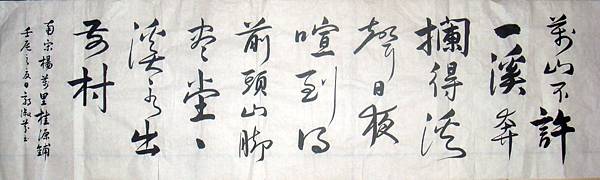 萬山不許
一溪奔
攔得溪
聲日夜
喧到得
前頭山脚
盡堂〻
溪水出
前村
南宋楊萬里桂源鋪
壬辰之夏日